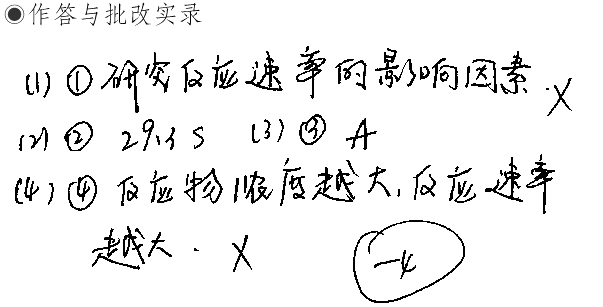 ◉作答与批改实录
(1) ① 研究反应速率的影响因素. ×
(2) ② 29.3 s (3) ③ A
(4) ④ 反应物浓度越大,反应速率
越大. × -4